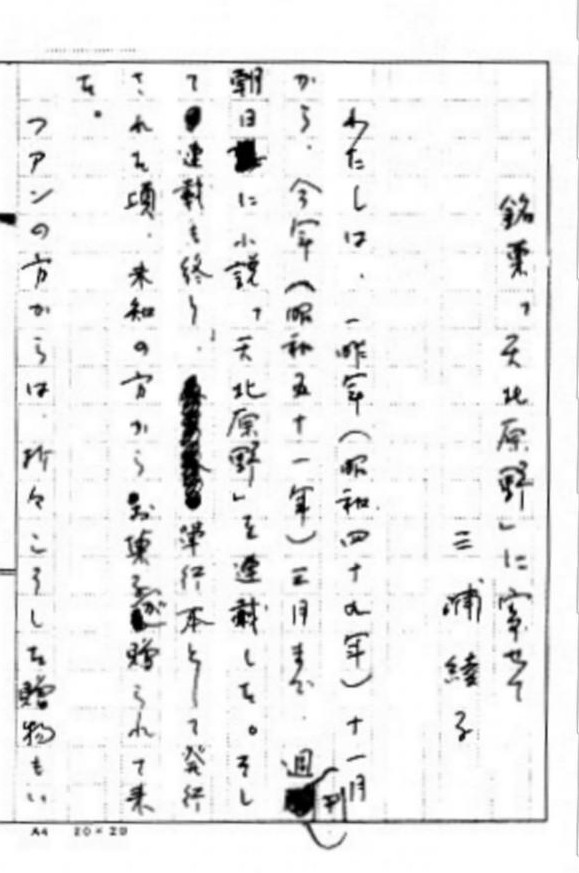 銘菓「天北原野」に寄せて
三浦綾子
わたしは、一昨年(昭和四十九年)十一月
から、今年(昭和五十一年)三月まで、週刊
朝日に小説「天北原野」を連載した。そし
て連載も終り、単行本として発行
された頃、未知の方からお菓子が贈られて来
た。
ファンの方からは、折々こうした贈物もい
A4 20×20